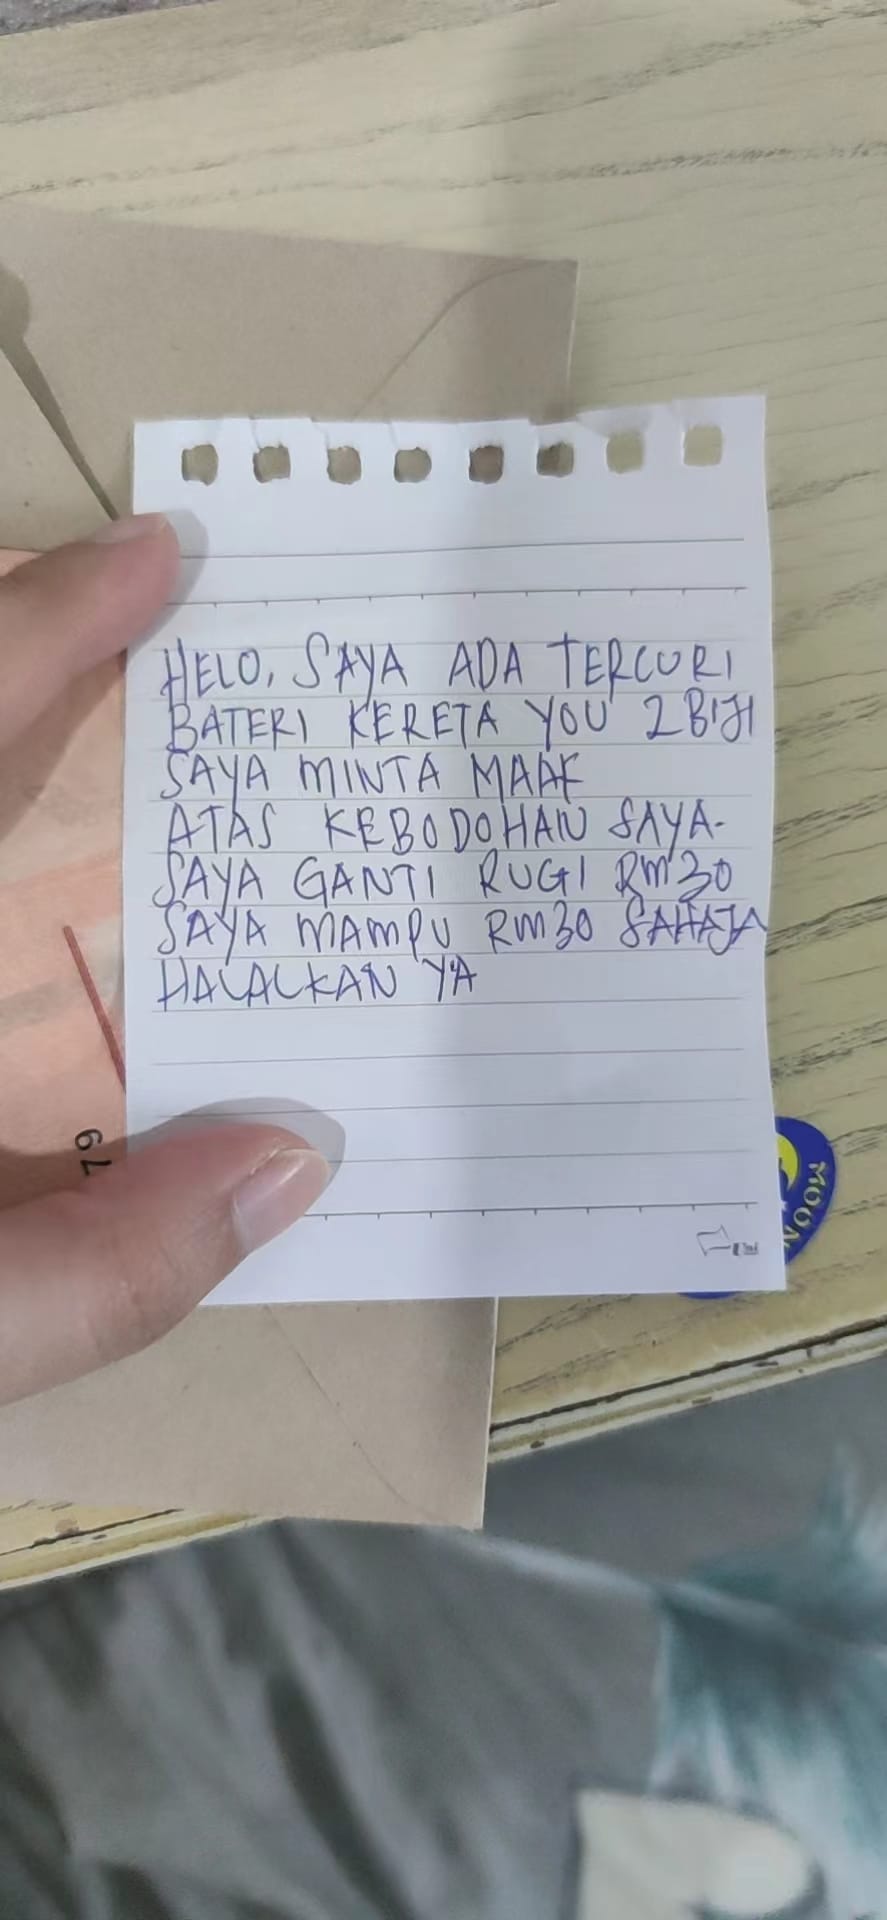 HELO, SAYA ADA TERCURI
BATERI KERETA YOU 2 BIJI
SAYA MINTA MAAF
ATAS KEBODOHAN SAYA.
SAYA GANTI RUGI RM30
SAYA MAMPU RM30 SAHAJA
HALALKAN YA
67
MOON